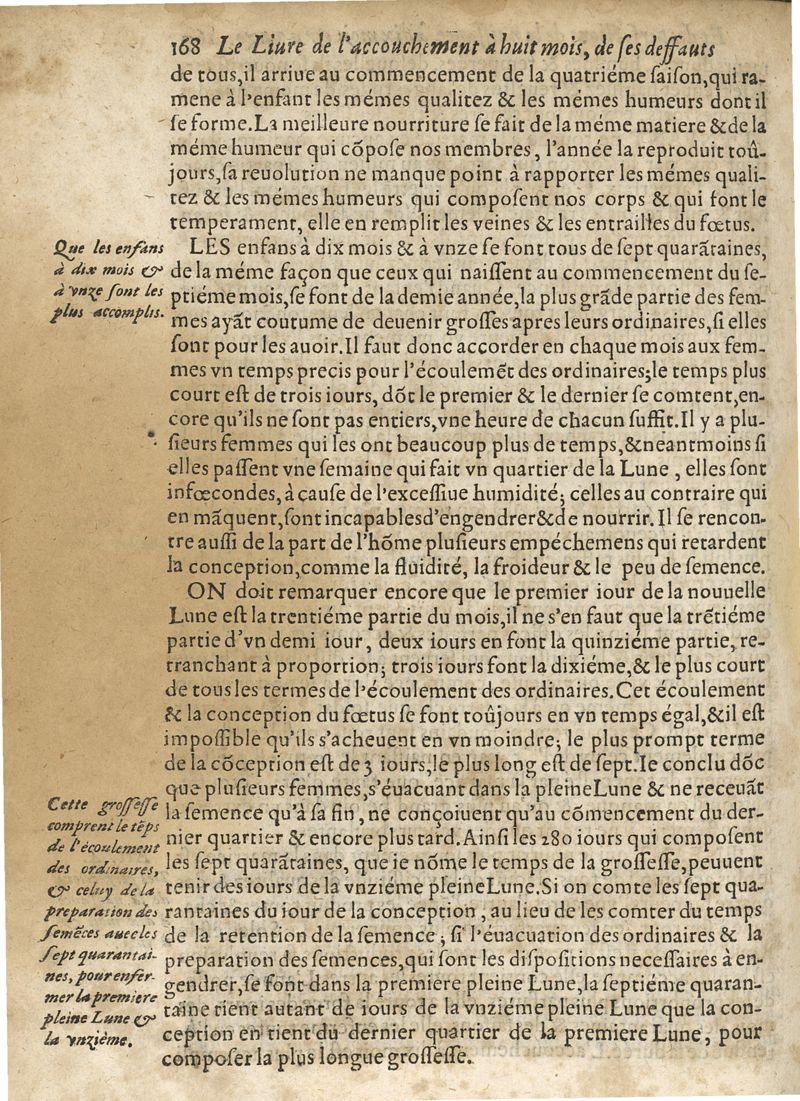 168 Le Liure de l'accouchement à huit mois, de ſes deffauts
de tous,il arriue au commencement de la quatriéme ſaiſon,qui ra-
mene à l'enfant les mémes qualitez & les mémes humeurs dont il
ſe forme.La meilleure nourriture ſe fait de la méme matiere & de la
méme humeur qui cõpoſe nos membres, l'année la reproduit toû-
jours,ſa reuolution ne manque point à rapporter les mémes quali-
tez & les mémes humeurs qui compoſent nos corps & qui font le
temperament, elle en remplit les veines & les entrailles du fœtus.
Que les enfans
à dix mois &
à vnze ſont les
plus accomplis.
LES enfans à dix mois & à vnze ſe font tous de ſept quarãtaines,
de la méme façon que ceux qui naiſſent au commencement du ſe-
ptiéme mois,ſe font de la demie année,la plus grãde partie des fem-
mes ayãt coutume de deuenir groſſes apres leurs ordinaires,ſi elles
ſont pour les auoir.Il faut donc accorder en chaque mois aux fem-
mes vn temps precis pour l'écoulemẽt des ordinaires;le temps plus
court eſt de trois iours, dõt le premier & le dernier ſe comtent,en-
core qu'ils ne ſont pas entiers,vne heure de chacun ſuffit.Il y a plu-
ſieurs femmes qui les ont beaucoup plus de temps,&neantmoins ſi
elles paſſent vne ſemaine qui fait vn quartier de la Lune , elles ſont
infœcondes, à cauſe de l'exceſſiue humidité; celles au contraire qui
en mãquent,ſont incapablesd'engendrer&de nourrir. Il ſe rencon-
tre auſſi de la part de l'hõme pluſieurs empéchemens qui retardent
la conception,comme la fluidité, la froideur & le peu de ſemence.
ON doit remarquer encore que le premier iour de la nouuelle
Lune eſt la trentiéme partie du mois,il ne s'en faut que la trẽtiéme
partie d'vn demi iour, deux iours en font la quinziéme partie, re-
tranchant à proportion; trois iours font la dixiéme,& le plus court
de tous les termes de l'écoulement des ordinaires.Cet écoulement
& la conception du fœtus ſe font toûjours en vn temps égal,&il eſt
impoſſible qu'ils s'acheuent en vn moindre; le plus prompt terme
de la cõception eſt de 3 iours,le plus long eſt de ſept.Ie conclu dõc
que pluſieurs femmes,s'éuacuant dans la pleine Lune & ne receuãt
la ſemence qu'à ſa fin , ne conçoiuent qu'au cõmencement du der-
nier quartier & encore plus tard. Ainſi les 280 iours qui compoſent
les ſept quarãtaines, que ie nõme le temps de la groſſeſſe,peuuent
tenir des iours de la vnziéme pleine Lune.Si on comte les ſept qua-
rantaines du iour de la conception , au lieu de les comter du temps
de la retention de la ſemence ; ſi l'éuacuation des ordinaires & la
preparation des ſemences,qui ſont les diſpoſitions neceſſaires à en-
gendrer,ſe font dans la premiere pleine Lune,la ſeptiéme quaran-
taine tient autant de iours de la vnziéme pleine Lune que la con-
ception en tient du dernier quartier de la premiere Lune, pour
compoſer la plus longue groſſeſſe.
Cette groſſeſſe
comprent le tẽps
de l'écoulement
des ordinaires,
& celuy de la
preparation des
ſemẽces auec les
ſept quarantai-
nes, pour enfer-
mer la premiere
pleine Lune &
la vnziéme.